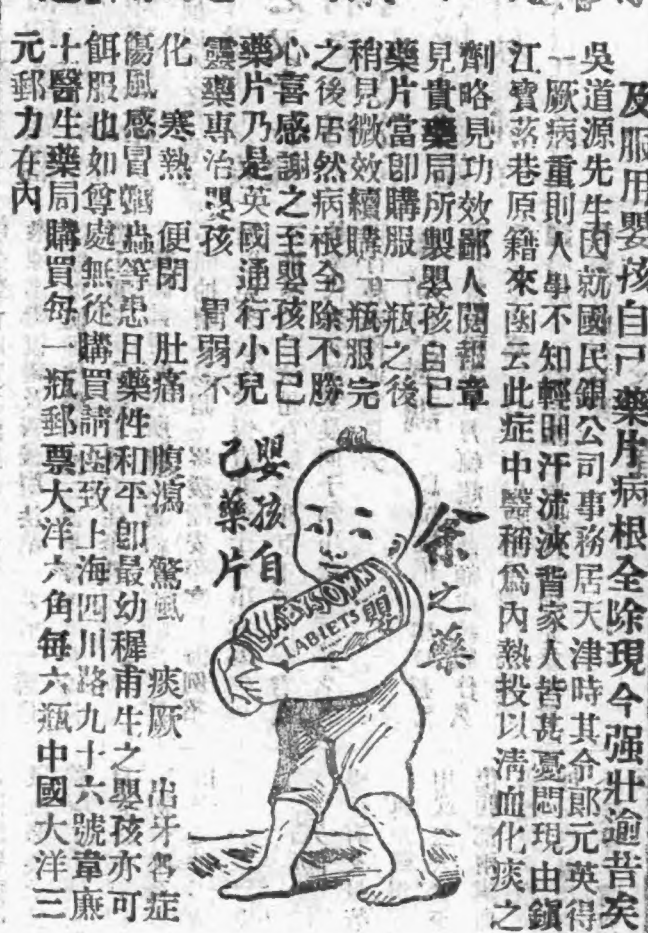 及服用嬰孩自己藥片病根全除現今强壯逾昔矣
吳道源先生因就國民銀公司事務居天津時其令郎元英得
一厥病重則人事不知輕則汗流浹背家人皆甚憂悶現由鎭
江寶蓋巷原籍來函云此症中醫稱爲內熱投以淸血化痰之
劑略見功效鄙人閱報章
見貴藥局所製嬰孩自己
藥片當卽購服一瓶之後
稍見微效續購一瓶服完
之後居然病根全除不勝
心喜感謝之至嬰孩自己
藥片乃是英國通行小兒
靈藥專治嬰孩 胃弱不
化 寒熱 便閉 肚痛 腹瀉 驚風 痰厥 出牙各症
傷風感冒蛔蟲等患且藥性和平卽最幼穉甫生之嬰孩亦可
餌服也如尊處無從購買請函致上海四川路九十六號韋廉
士醫生藥局購買每一瓶郵票大洋六角每六瓶中國大洋三
元郵力在內
余之藥
嬰孩自
己藥片
TABLETS